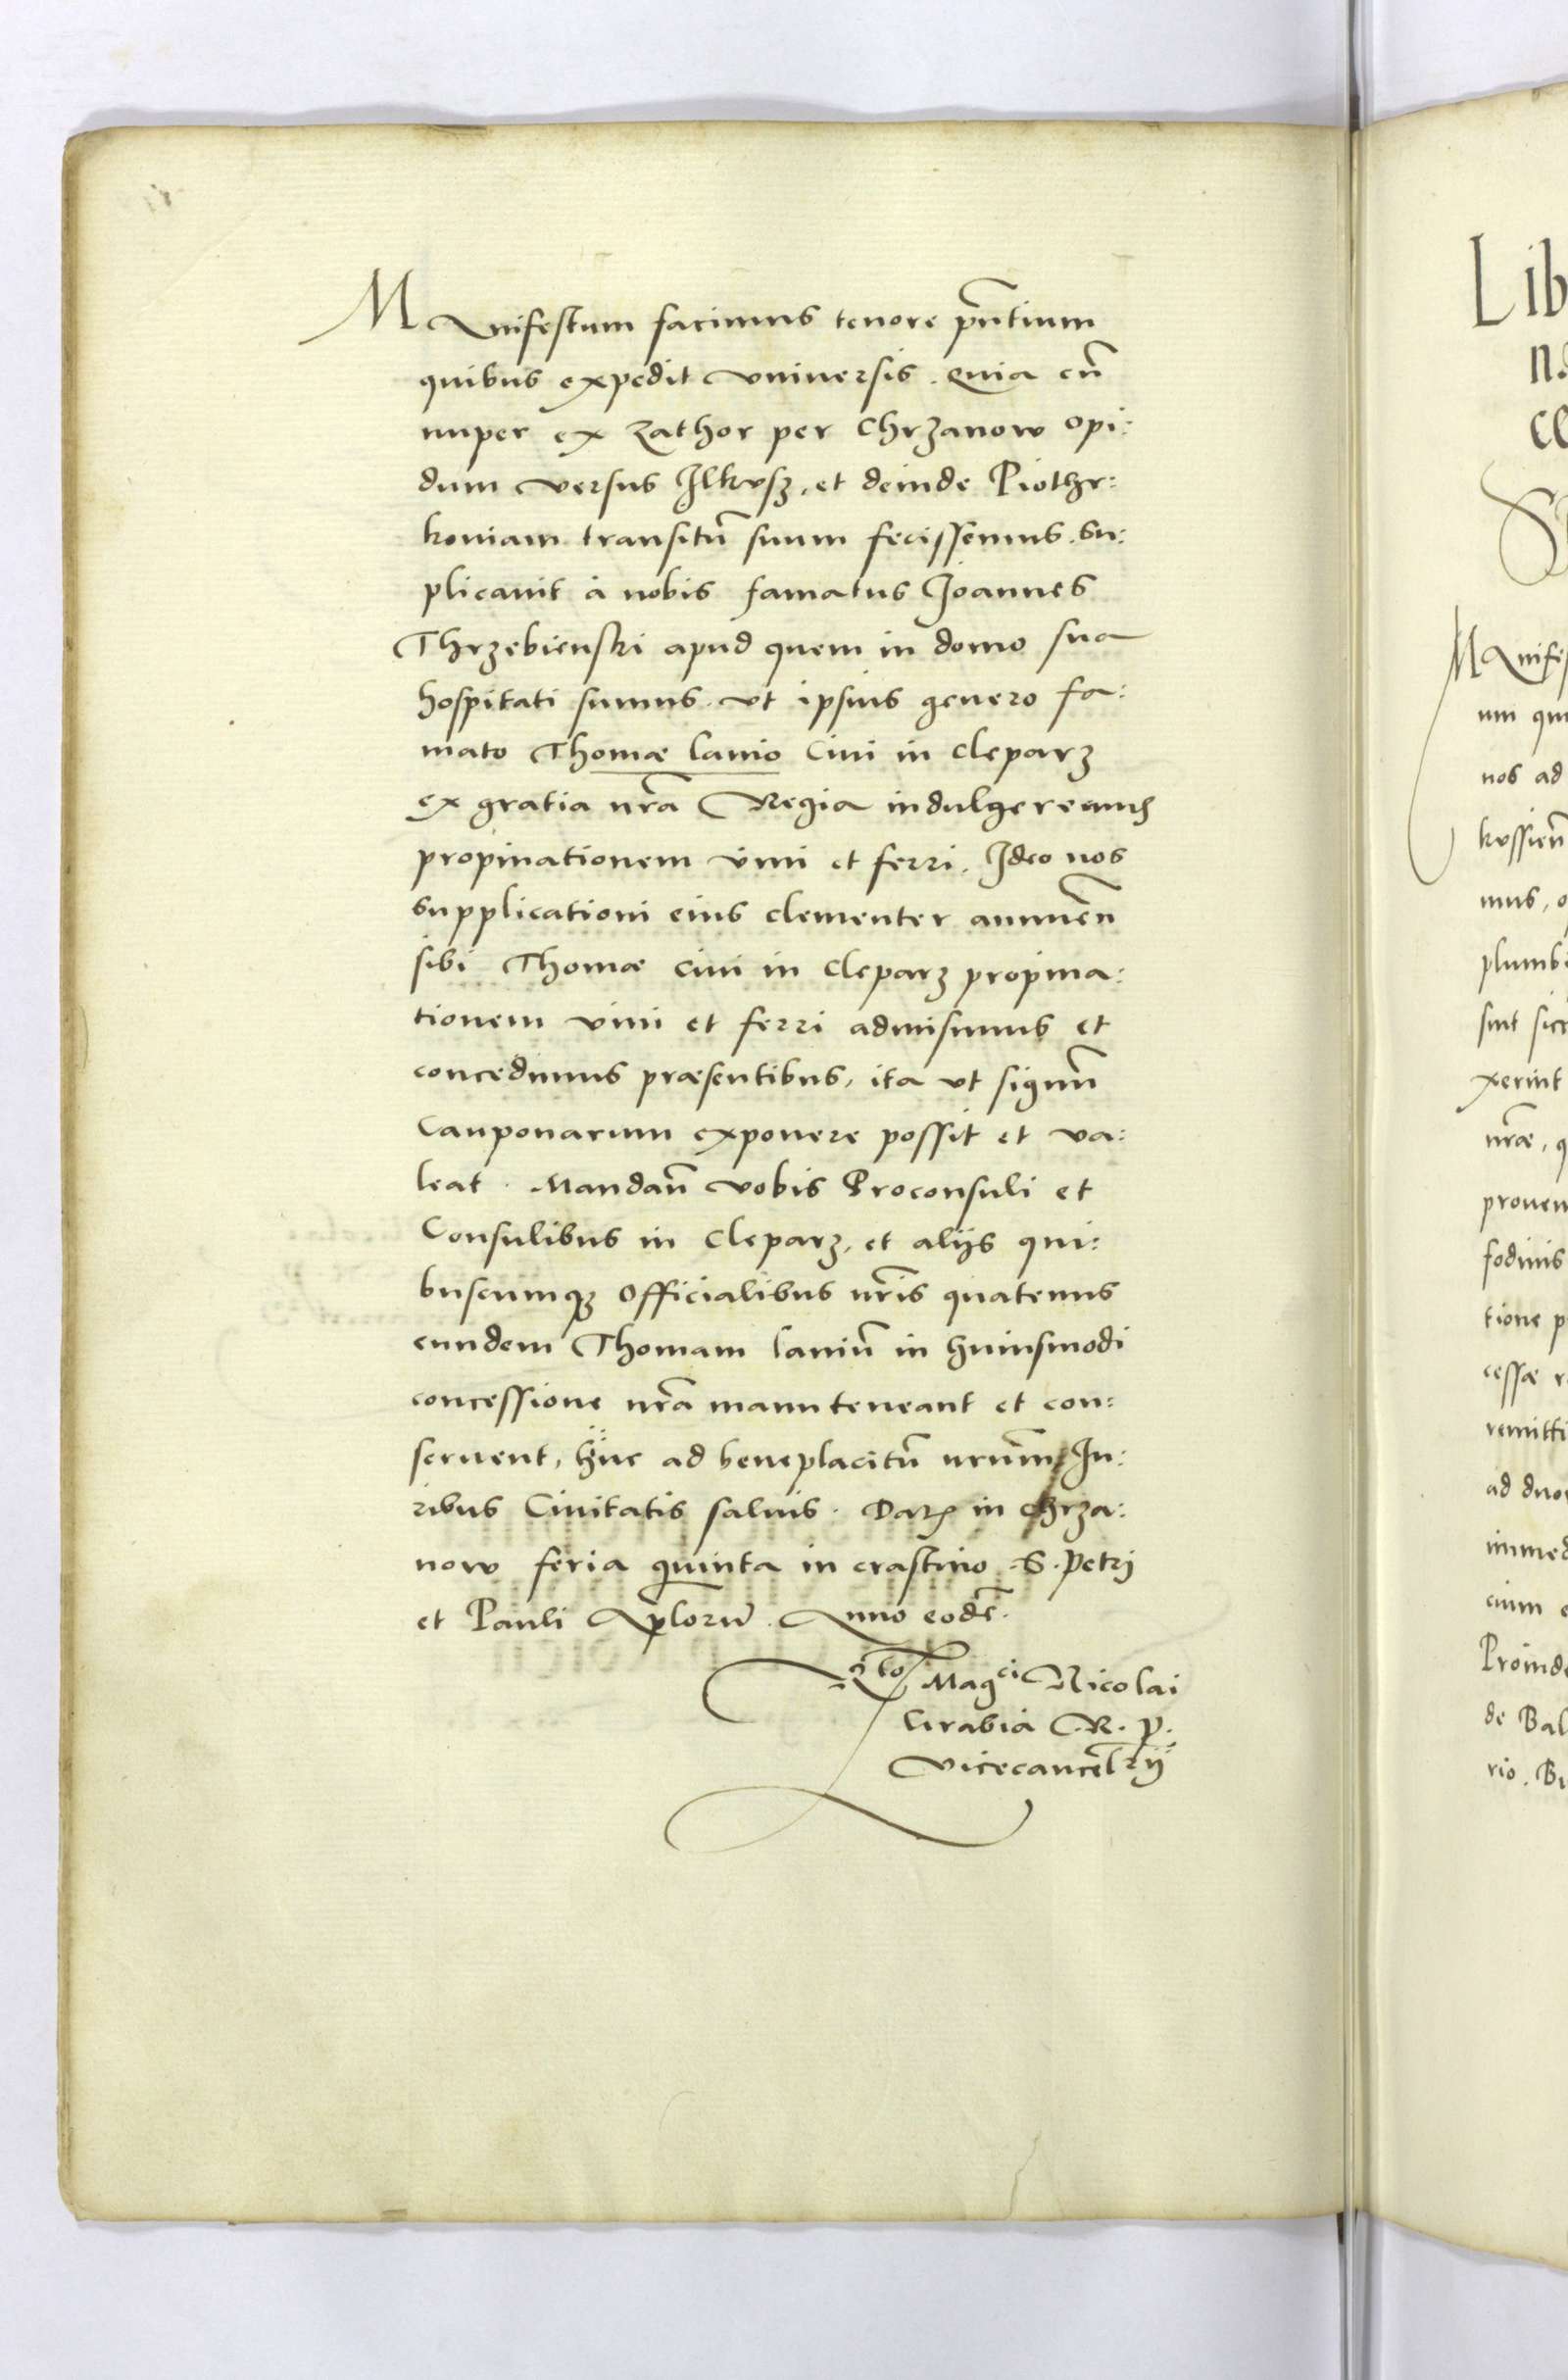 MAnifestum facimus tenore pñtium
quibus expedit vniuersis. Quia cũ
nuper ex Zathor per Chrzanow opi:
dum versus Ilkvsz, et deinde Piothr:
koniam transitũ suum fecissemus. Su:
plicauit à nobis famatus Joannes
Thrzebienski apud quem in domo sua
hospitati sumus. vt ipsius genero fa:
mato Thomæ lanio Ciui in Cleparz
ex gratia nr̃a Regia indulgeremus
propinationem vini et ferri. Ideo nos
supplicationi eius clementer annuen̄
sibi Thomæ ciui in Cleparz propina:
tionem vini et ferri admisimus et
concedimus præsentibus, ita vt signũ
Cauponarum exponere possit et va:
leat. Mandan̄ vobis Proconsuli et
Consulibus in Cleparz, et alijs qui:
buscumqз Officialibus nr̃is quatenus
eundem Thomam laniũ in huiusmodi
concessione nr̃a manuteneant et con:
seruent, hũc ad beneplacitũ nrũm Iu:
ribus Ciuitatis saluis. Datʒ in Chrza:
now feria quinta in crastino S. Petri
et Pauli Aplorũ. Anno eodẽ.
Rᵗᵒ Magᶜⁱ Nicolai
Grabia R. P.
Vicecancellrij
Lib
MAnifes
um qu
nos ad
kvssien̄
mus, o
plumb
sint sic
xerint
nr̃æ, q
prouen
fodinis
tione p
cessæ r
remitti
ad duo
immed
cium e
Proinde
de Bal
rio. Bu